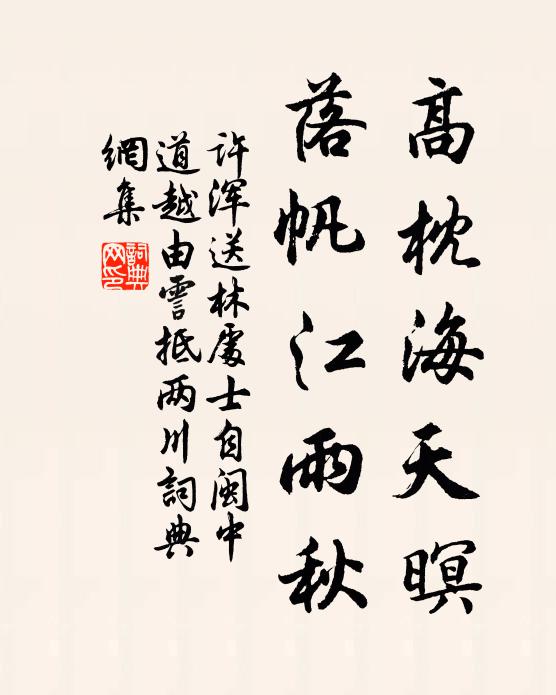 高枕海天暝
落帆江雨秋
许浑送林處士自闽中
道越由霅抵两川詞典
網集
詞典网印